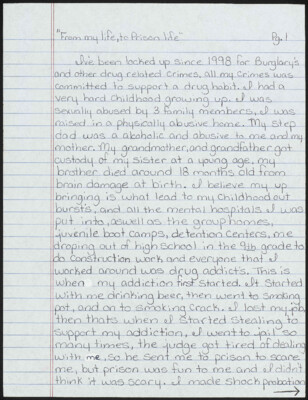 "From my life, to Prison life" Pg. 1
I've been locked up since 1998 for Burglary's
and other drug related crimes, all my crimes was
committed to support a drug habit. I had a
very hard childhood growing up. I was
sexually abused by 3 family members, I was
raised in a physically abusive home. My step
dad was a aboholic and abusive to me and my
mother. My grandmother, and grandfather got
custody of my sister at a young age, my
brother died around 18 months old from
brain damage at birth. I believe my up
bringing is what lead to my childhood out
bursts, and all the mental hospitals I was
put into, aswell as the group homes,
juvenile boot camps, detention centers, me
droping out of high school in the 9th grade to
do construction work and everyone that I
worked around was drug addicts. This is
when my addiction first started. It started
with me drinking beer, then went to smoking
pot, and on to smoking crack. I lost my job
then thats when I started stealing to
support my addiction, I went to jail so
many times, the judge got tired of dealing
with me, so he sent me to prison to scare
me, but prison was fun to me and I didn't
think it was scary. I made shock probation